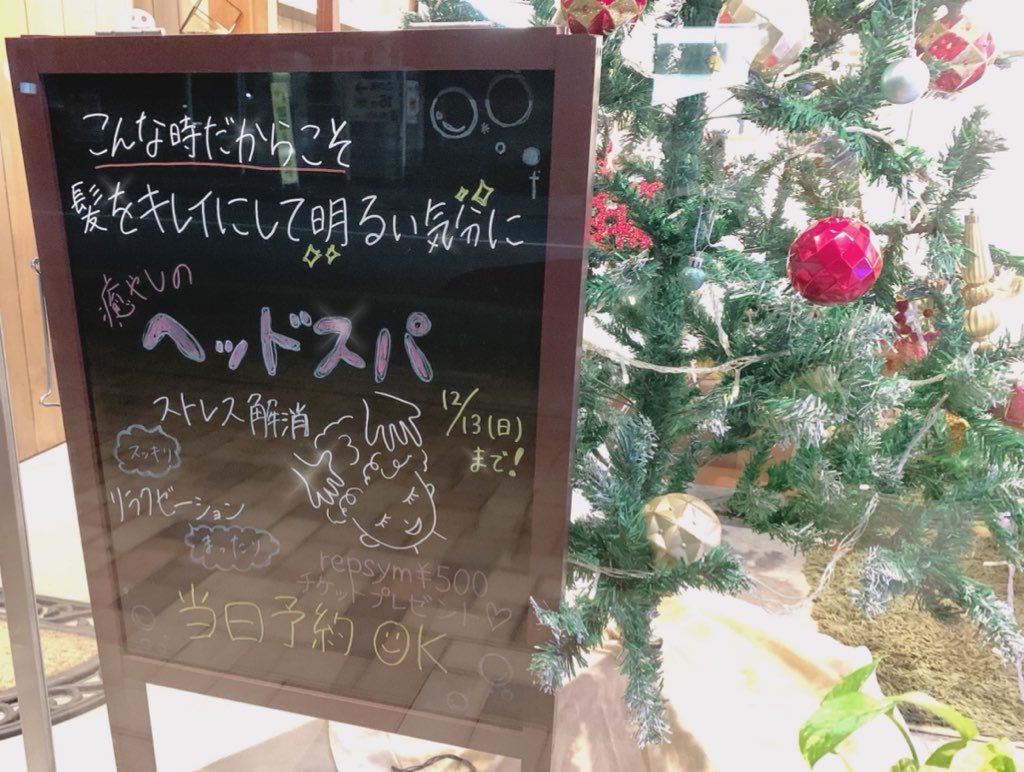 こんな時だからこそ
髪をキレイにして明るい気分に
癒やしの
ヘッドスパ
ストレス解消
スッキリ
リラクゼーション
まったり
12/13(日)
まで!
repsym¥500
チケットプレゼント♡
当日予約 OK